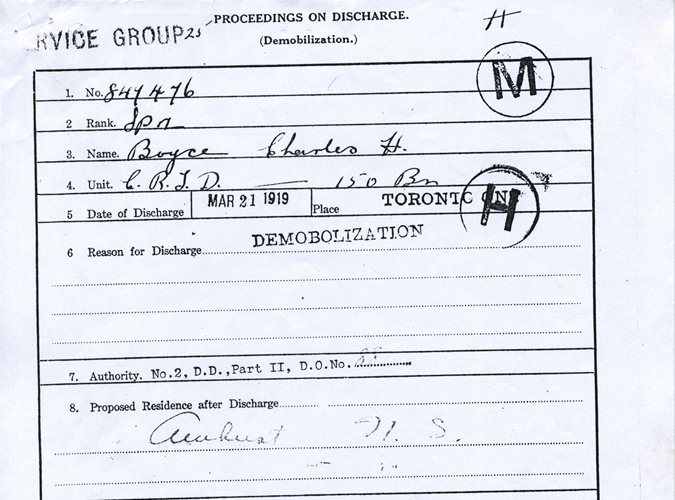 PROCEEDINGS ON DISCHARGE.
H
RVICE GROUP 25
(Demobilization.)
M
1. No. 847476
2 Rank. Spr
3. Name. Boyce Charles H.
4. Unit. C.R.T.D. — 150 Bn
5 Date of Discharge MAR 21 1919 Place TORONTO ONT
H
6 Reason for Discharge DEMOBOLIZATION
7. Authority. No.2, D.D., Part II, D.O.No.
8. Proposed Residence after Discharge
Amherst N. S.